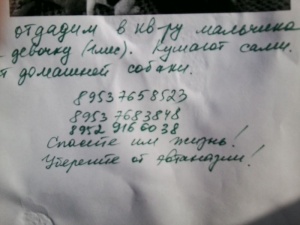 отдадим в кв-ру мальчика
девочку (1мес). Кушают сами.
от домашней собаки.
89537658523
89537683848
89529166038
Спасите им жизнь!
Уберегите от эвтаназии!